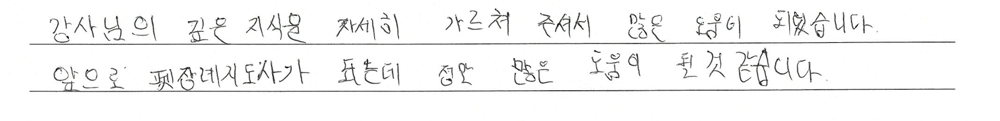 강사님의 깊은 지식을 자세히 가르쳐 주셔서 많은 도움이 되었습니다.
앞으로 펫장례지도사가 되는데 정말 많은 도움이 될 것 같습니다.